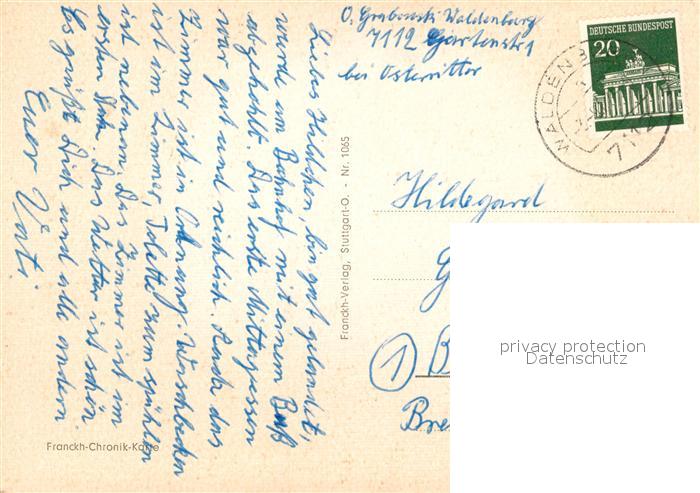 O. Grabowski Waldenburg
7112 Gartenstr 1
bei Osterritter
DEUTSCHE BUNDESPOST
20
WALDENB
7112
Liebes Hildchen, bin gut gelandet,
wurde am Bahnhof mit einem Buß
abgeholt. Das erste Mittagessen
war gut und reichlich. Auch das
Zimmer ist in Ordnung. Waschbecken
ist im Zimmer, Toilette zum spühlen
ist nebenan. Das Zimmer ist im
ersten Stock. Das Wetter ist schön.
Es grüßt Dich und alle andern
Euer Vati
Franckh-Verlag, Stuttgart-O. - Nr. 1065
Franckh-Chronik-Karte
Hildegard
G
1 B
Bre
privacy protection
Datenschutz